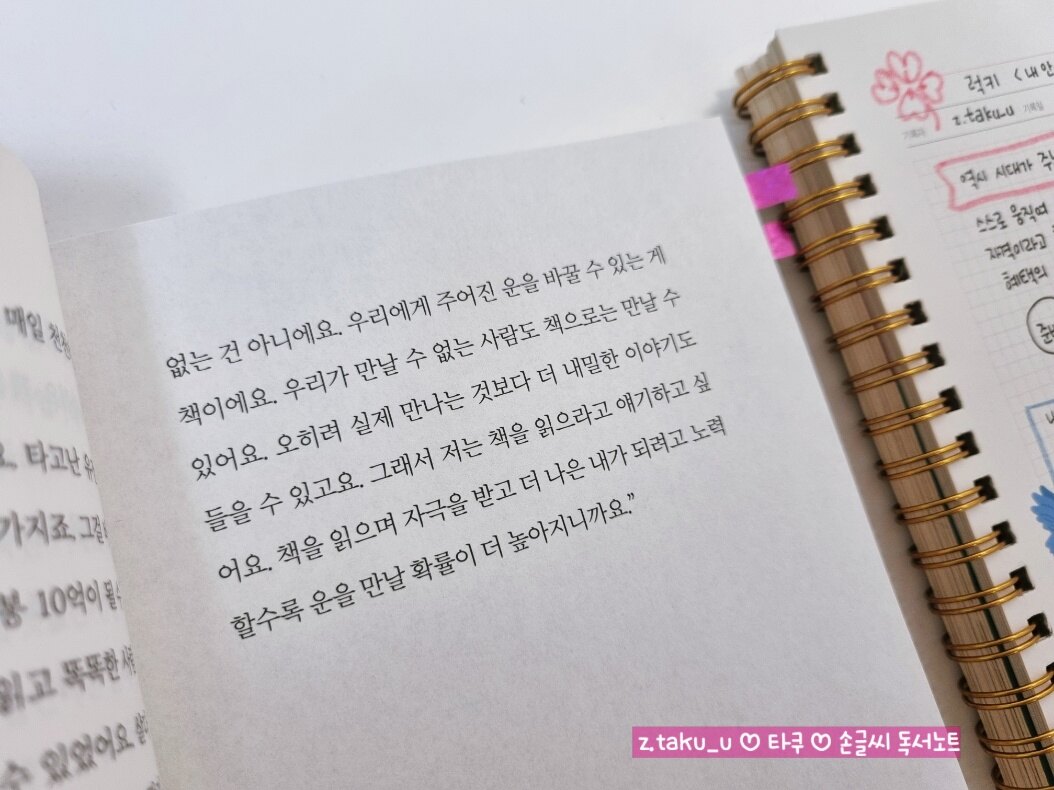 매일 천천
요. 타고난 유
가지죠. 그걸
봉 10억이 될
읽고 똑똑한 사
수 있었어요.
없는 건 아니에요. 우리에게 주어진 운을 바꿀 수 있는 게
책이에요. 우리가 만날 수 없는 사람도 책으로는 만날 수
있어요. 오히려 실제 만나는 것보다 더 내밀한 이야기도
들을 수 있고요. 그래서 저는 책을 읽으라고 얘기하고 싶
어요. 책을 읽으며 자극을 받고 더 나은 내가 되려고 노력
할수록 운을 만날 확률이 더 높아지니까요.”
럭키 <내 안
기록자 z.taku_u 기록일
역시 시대가 주
스스로 움직여
자격이라고
혜택의
준
z.taku_u ♡ 타쿠 ♡ 손글씨 독서노트